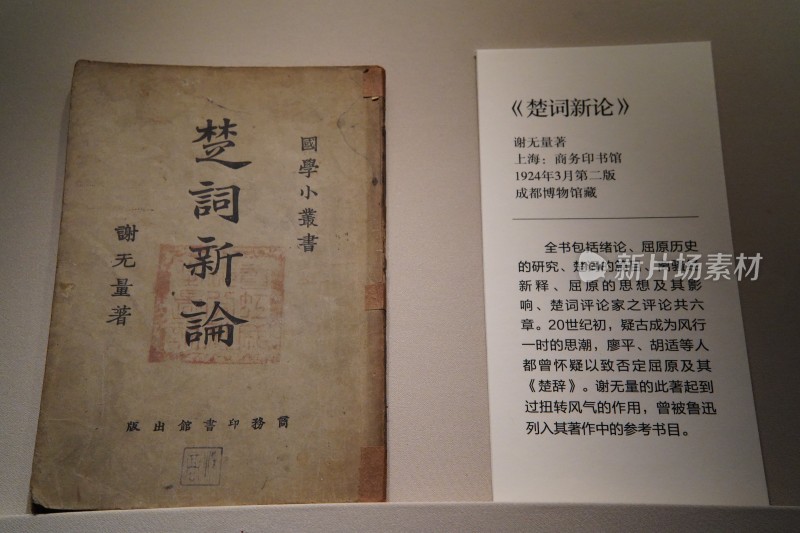 國學小叢書
楚詞新論
謝无量著
商務印書館出版
《楚词新论》
谢无量著
上海：商务印书馆
1924年3月第二版
成都博物馆藏
全书包括绪论、屈原历史
的研究、楚词的
新释、屈原的思想及其影
响、楚词评论家之评论共六
章。20世纪初，疑古成为风行
一时的思潮，廖平、胡适等人
都曾怀疑以致否定屈原及其
《楚辞》。谢无量的此著起到
过扭转风气的作用，曾被鲁迅
列入其著作中的参考书目。
新片场素材